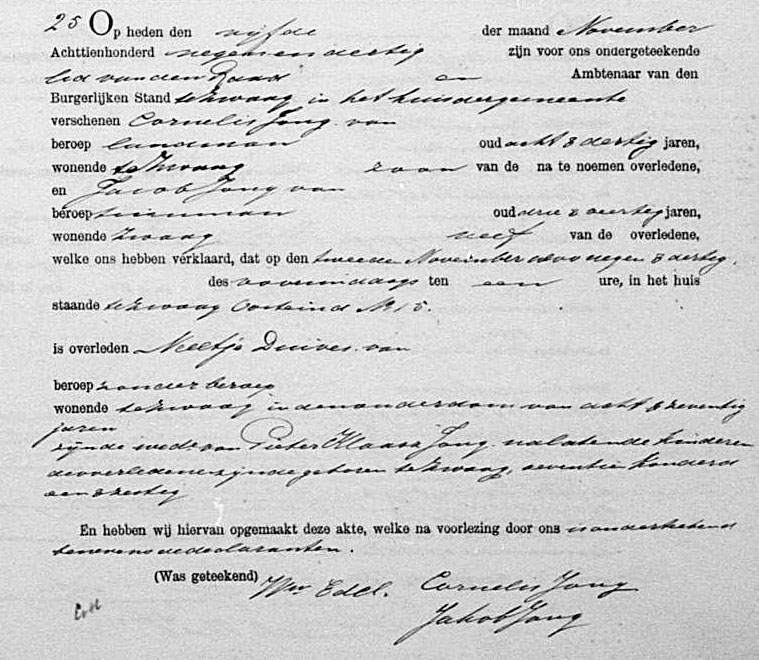 25 Op heden den vijfde der maand November
Achttienhonderd negen en dertig zijn voor ons ondergeteekende
lid van den Raad en Ambtenaar van den
Burgerlijken Stand te Zwaag in het huis der gemeente
verschenen Cornelis Jong van
beroep landman oud acht & dertig jaren,
wonende te Zwaag zoon van de na te noemen overledene,
en Jacob Jong van
beroep tuinman oud drie & veertig jaren,
wonende Zwaag neef van de overledene,
welke ons hebben verklaard, dat op den tweede November negen & dertig
des voormiddags ten een ure, in het huis
staande te Zwaag Oosteind No 15.
is overleden Neeltje Duives van
beroep zonder beroep
wonende te Zwaag in den ouderdom van acht & zeventig
jaren
zijnde wede van Pieter Klaasz Jong nalatende kinderen
de overledene zijnde geboren te Zwaag, seventien honderd
een & zestig
En hebben wij hiervan opgemaakt deze akte, welke na voorlezing door ons is onderteekend
benevens de declaranten.
(Was geteekend) Wm Edel. Cornelis Jong
Jakob Jong